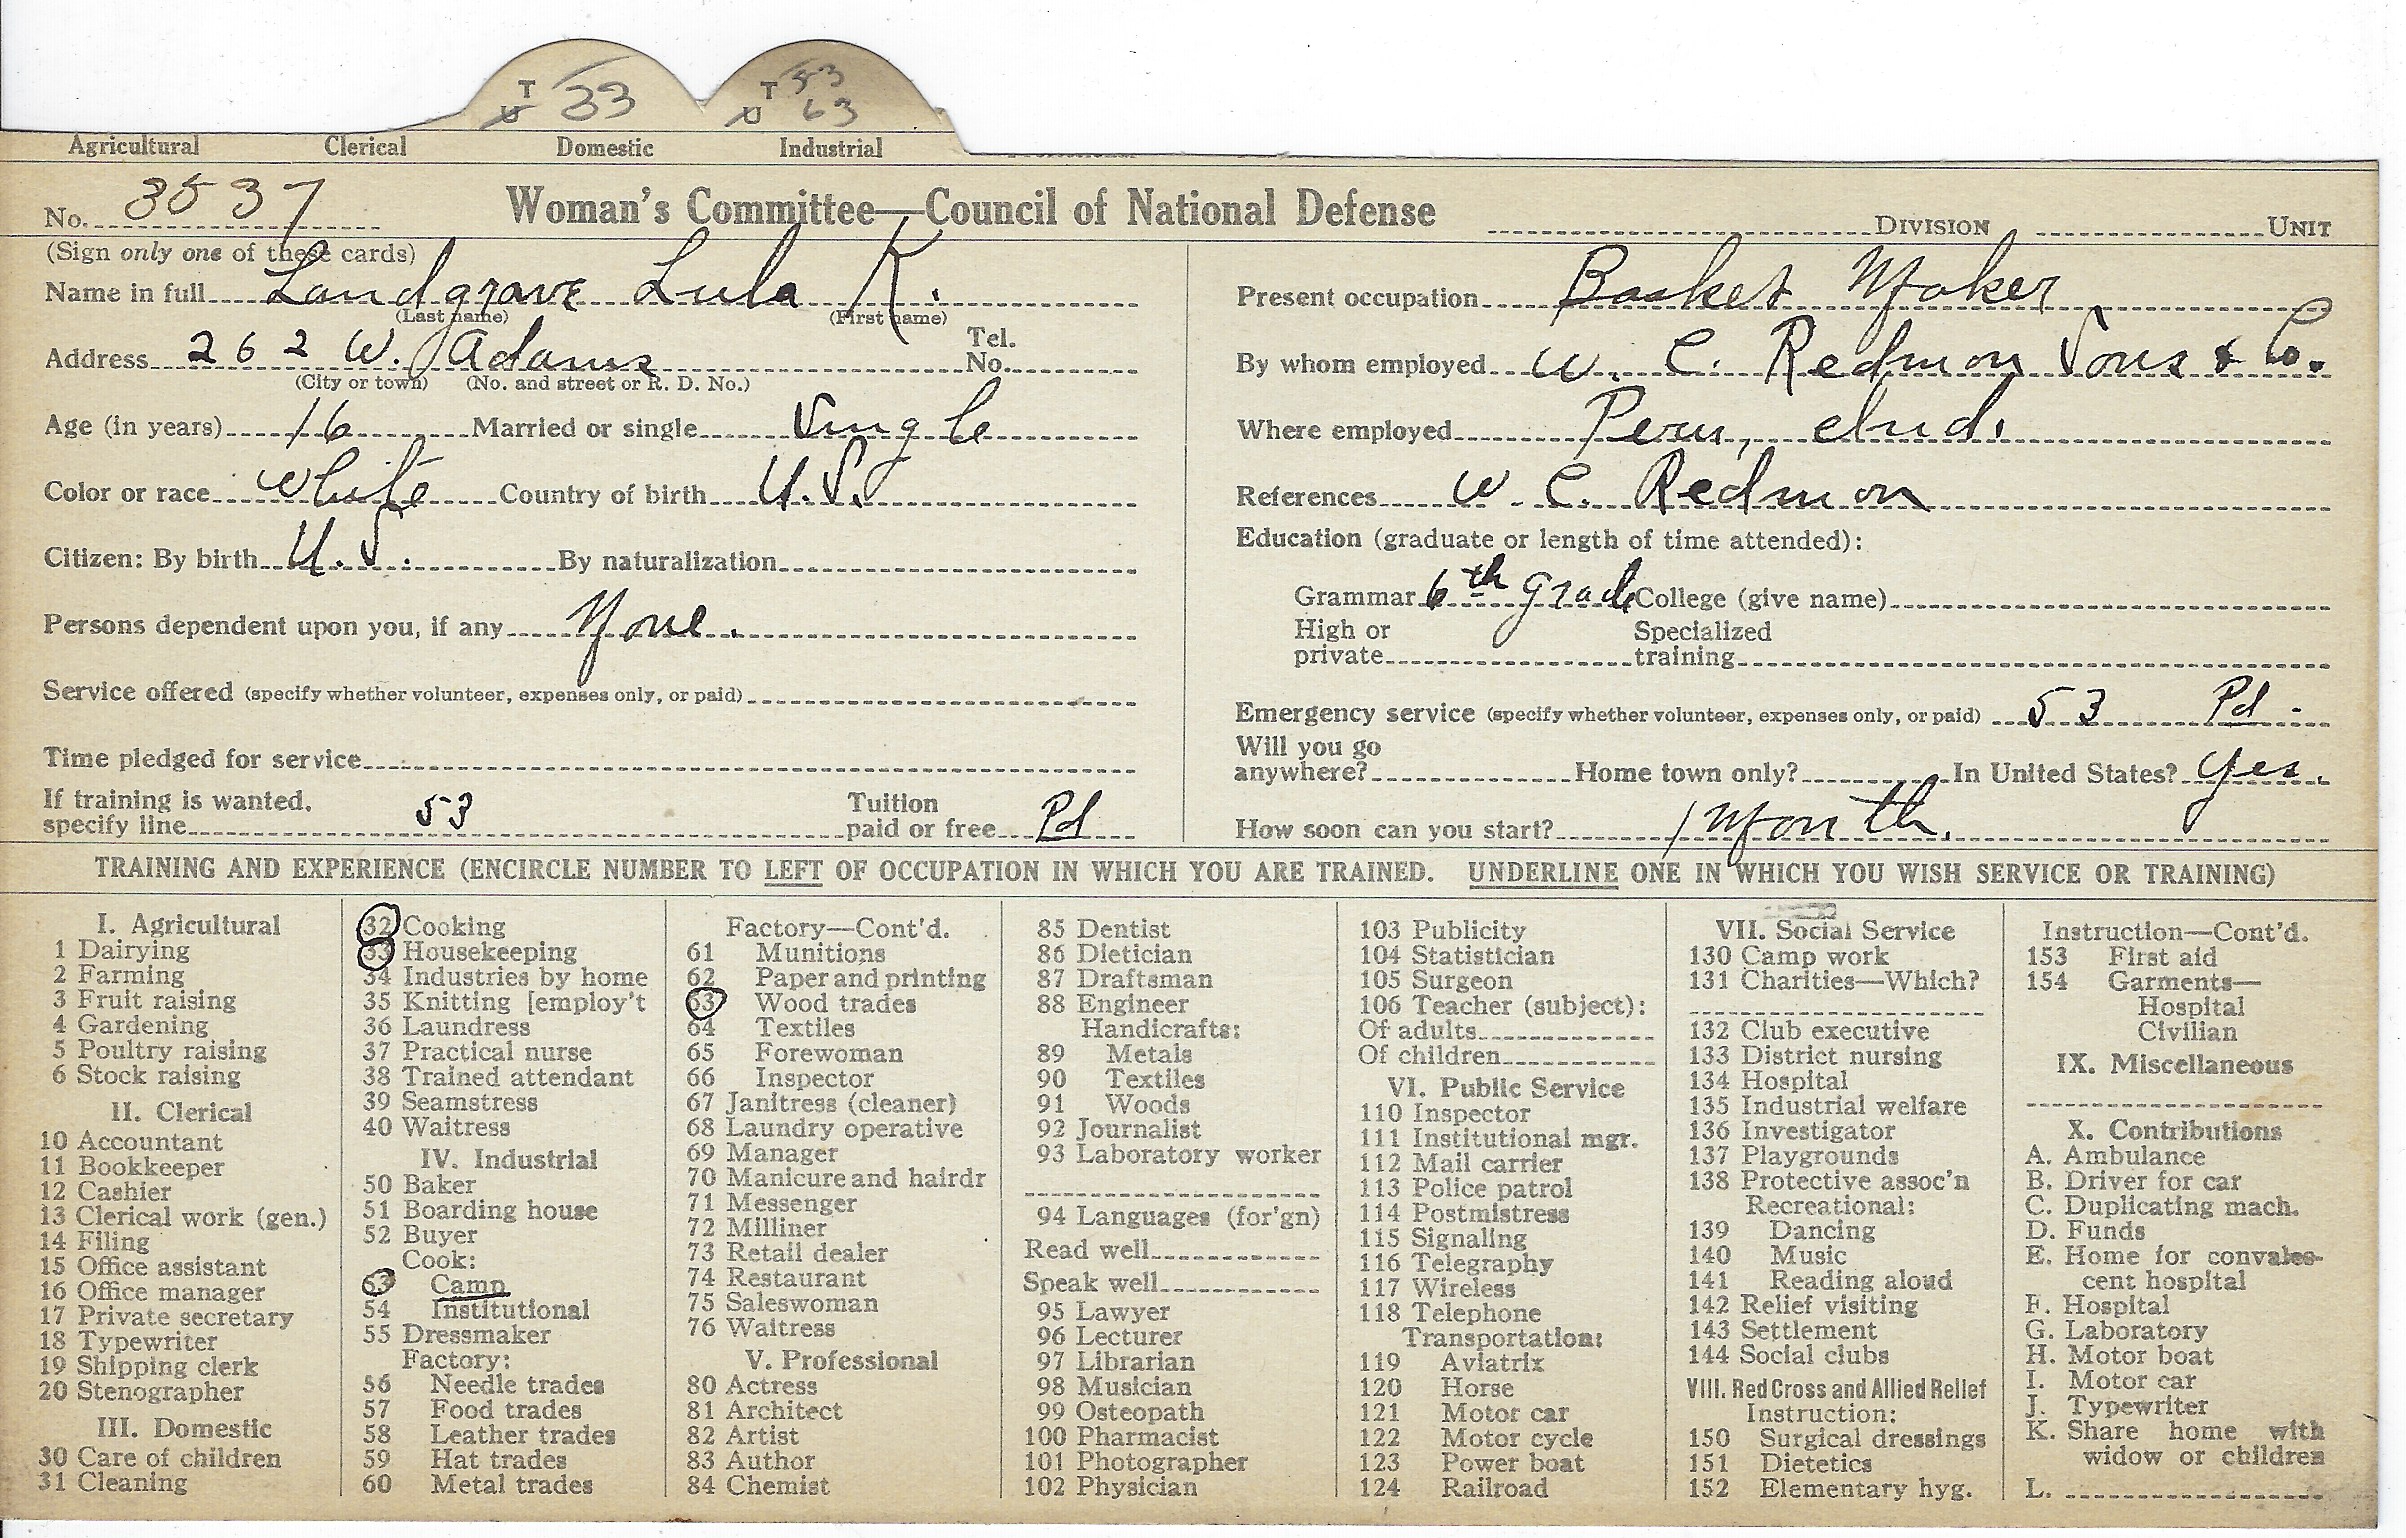 T 33 T 53
U U 63
Agricultural Clerical Domestic Industrial
No. 3537 Woman's Committee—Council of National Defense DIVISION UNIT
(Sign only one of these cards)
Name in full Landgrave Lula K.
(Last name) (First name)
Address 262 W. Adams Tel. No.
(City or town) (No. and street or R. D. No.)
Age (in years) 16 Married or single Single
Color or race White Country of birth U.S.
Citizen: By birth U.S. By naturalization
Persons dependent upon you, if any None.
Service offered (specify whether volunteer, expenses only, or paid)
Time pledged for service
If training is wanted, specify line 53 Tuition paid or free Pd
Present occupation Basket Maker
By whom employed W. C. Redmon Sons & Co.
Where employed Peru, Ind.
References W. C. Redmon
Education (graduate or length of time attended):
Grammar 6th grade College (give name)
High or private Specialized training
Emergency service (specify whether volunteer, expenses only, or paid) 53 Pd.
Will you go anywhere? Home town only? In United States? Yes.
How soon can you start? 1 Month.
TRAINING AND EXPERIENCE (ENCIRCLE NUMBER TO LEFT OF OCCUPATION IN WHICH YOU ARE TRAINED. UNDERLINE ONE IN WHICH YOU WISH SERVICE OR TRAINING)
I. Agricultural
1 Dairying
2 Farming
3 Fruit raising
4 Gardening
5 Poultry raising
6 Stock raising
II. Clerical
10 Accountant
11 Bookkeeper
12 Cashier
13 Clerical work (gen.)
14 Filing
15 Office assistant
16 Office manager
17 Private secretary
18 Typewriter
19 Shipping clerk
20 Stenographer
III. Domestic
30 Care of children
31 Cleaning
32 Cooking
33 Housekeeping
34 Industries by home
35 Knitting [employ't
36 Laundress
37 Practical nurse
38 Trained attendant
39 Seamstress
40 Waitress
IV. Industrial
50 Baker
51 Boarding house
52 Buyer
Cook:
53 Camp
54 Institutional
55 Dressmaker
Factory:
56 Needle trades
57 Food trades
58 Leather trades
59 Hat trades
60 Metal trades
Factory—Cont'd.
61 Munitions
62 Paper and printing
63 Wood trades
64 Textiles
65 Forewoman
66 Inspector
67 Janitress (cleaner)
68 Laundry operative
69 Manager
70 Manicure and hairdr
71 Messenger
72 Milliner
73 Retail dealer
74 Restaurant
75 Saleswoman
76 Waitress
V. Professional
80 Actress
81 Architect
82 Artist
83 Author
84 Chemist
85 Dentist
86 Dietician
87 Draftsman
88 Engineer
Handicrafts:
89 Metals
90 Textiles
91 Woods
92 Journalist
93 Laboratory worker
94 Languages (for'gn)
Read well
Speak well
95 Lawyer
96 Lecturer
97 Librarian
98 Musician
99 Osteopath
100 Pharmacist
101 Photographer
102 Physician
103 Publicity
104 Statistician
105 Surgeon
106 Teacher (subject):
Of adults
Of children
VI. Public Service
110 Inspector
111 Institutional mgr.
112 Mail carrier
113 Police patrol
114 Postmistress
115 Signaling
116 Telegraphy
117 Wireless
118 Telephone
Transportation:
119 Aviatrix
120 Horse
121 Motor car
122 Motor cycle
123 Power boat
124 Railroad
VII. Social Service
130 Camp work
131 Charities—Which?
132 Club executive
133 District nursing
134 Hospital
135 Industrial welfare
136 Investigator
137 Playgrounds
138 Protective assoc'n
Recreational:
139 Dancing
140 Music
141 Reading aloud
142 Relief visiting
143 Settlement
144 Social clubs
VIII. Red Cross and Allied Relief
Instruction:
150 Surgical dressings
151 Dietetics
152 Elementary hyg.
Instruction—Cont'd.
153 First aid
154 Garments—
Hospital
Civilian
IX. Miscellaneous
X. Contributions
A. Ambulance
B. Driver for car
C. Duplicating mach.
D. Funds
E. Home for convales-
cent hospital
F. Hospital
G. Laboratory
H. Motor boat
I. Motor car
J. Typewriter
K. Share home with
widow or children
L.